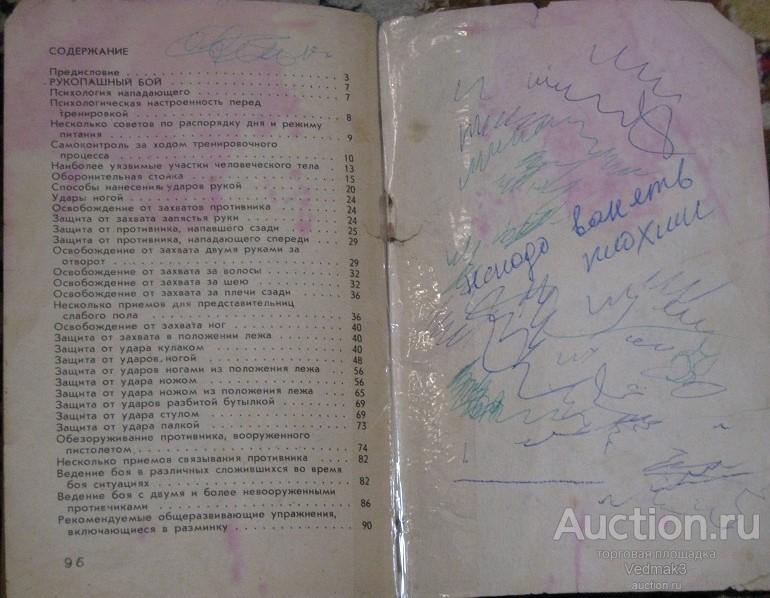 СОДЕРЖАНИЕ
Предисловие 3
РУКОПАШНЫЙ БОЙ 7
Психология нападающего 7
Психологическая настроенность перед
тренировкой 8
Несколько советов по распорядку дня и режиму
питания 9
Самоконтроль за ходом тренировочного
процесса 10
Наиболее уязвимые участки человеческого тела 13
Оборонительная стойка 15
Способы нанесения ударов рукой 20
Удары ногой 24
Освобождение от захватов противника 24
Защита от захвата запястья руки 24
Защита от противника, напавшего сзади 25
Защита от противника, нападающего спереди 29
Освобождение от захвата двумя руками за
отворот 29
Освобождение от захвата за волосы 32
Освобождение от захвата за шею 32
Освобождение от захвата за плечи сзади 36
Несколько приемов для представительниц
слабого пола 36
Освобождение от захвата ног 40
Защита от захвата в положении лежа 40
Защита от удара кулаком 40
Защита от ударов, ногой 48
Защита от ударов ногами из положения лежа 56
Защита от удара ножом 56
Защита от удара ножом из положения лежа 65
Защита от ударов разбитой бутылкой 69
Защита от удара стулом 69
Защита от удара палкой 73
Обезоруживание противника, вооруженного
пистолетом 74
Несколько приемов связывания противника 82
Ведение боя в различных сложившихся во время
боя ситуациях 82
Ведение боя с двумя и более невооруженными
противниками 86
Рекомендуемые общеразвивающие упражнения,
включающиеся в разминку 90
96
Auction.ru
торговая площадка
Vedmak3
auction.ru